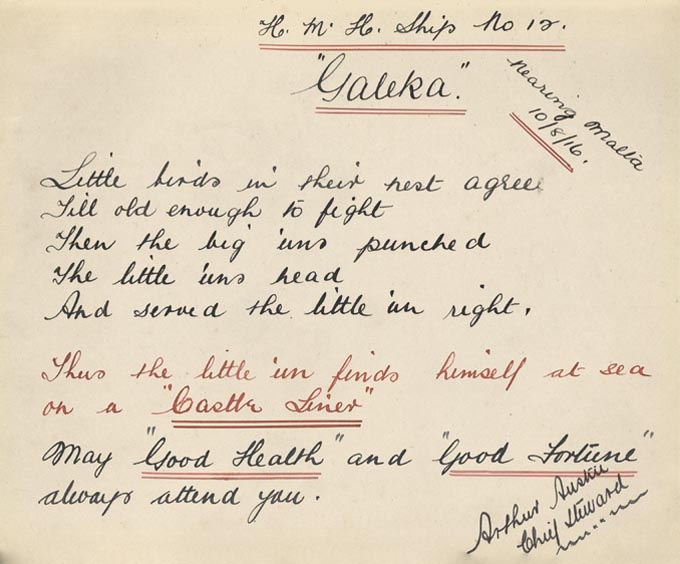 H. M. H. Ship No 12.
"Galeka."
Nearing Malta
10/8/16.
Little birds in their nest agree
Till old enough to fight
Then the big 'uns punched
The little 'uns head
And served the little 'un right.
Thus the little 'un finds himself at sea
on a "Castle Liner"
May "Good Health" and "Good Fortune"
always attend you.
Arthur Austin
Chief Steward